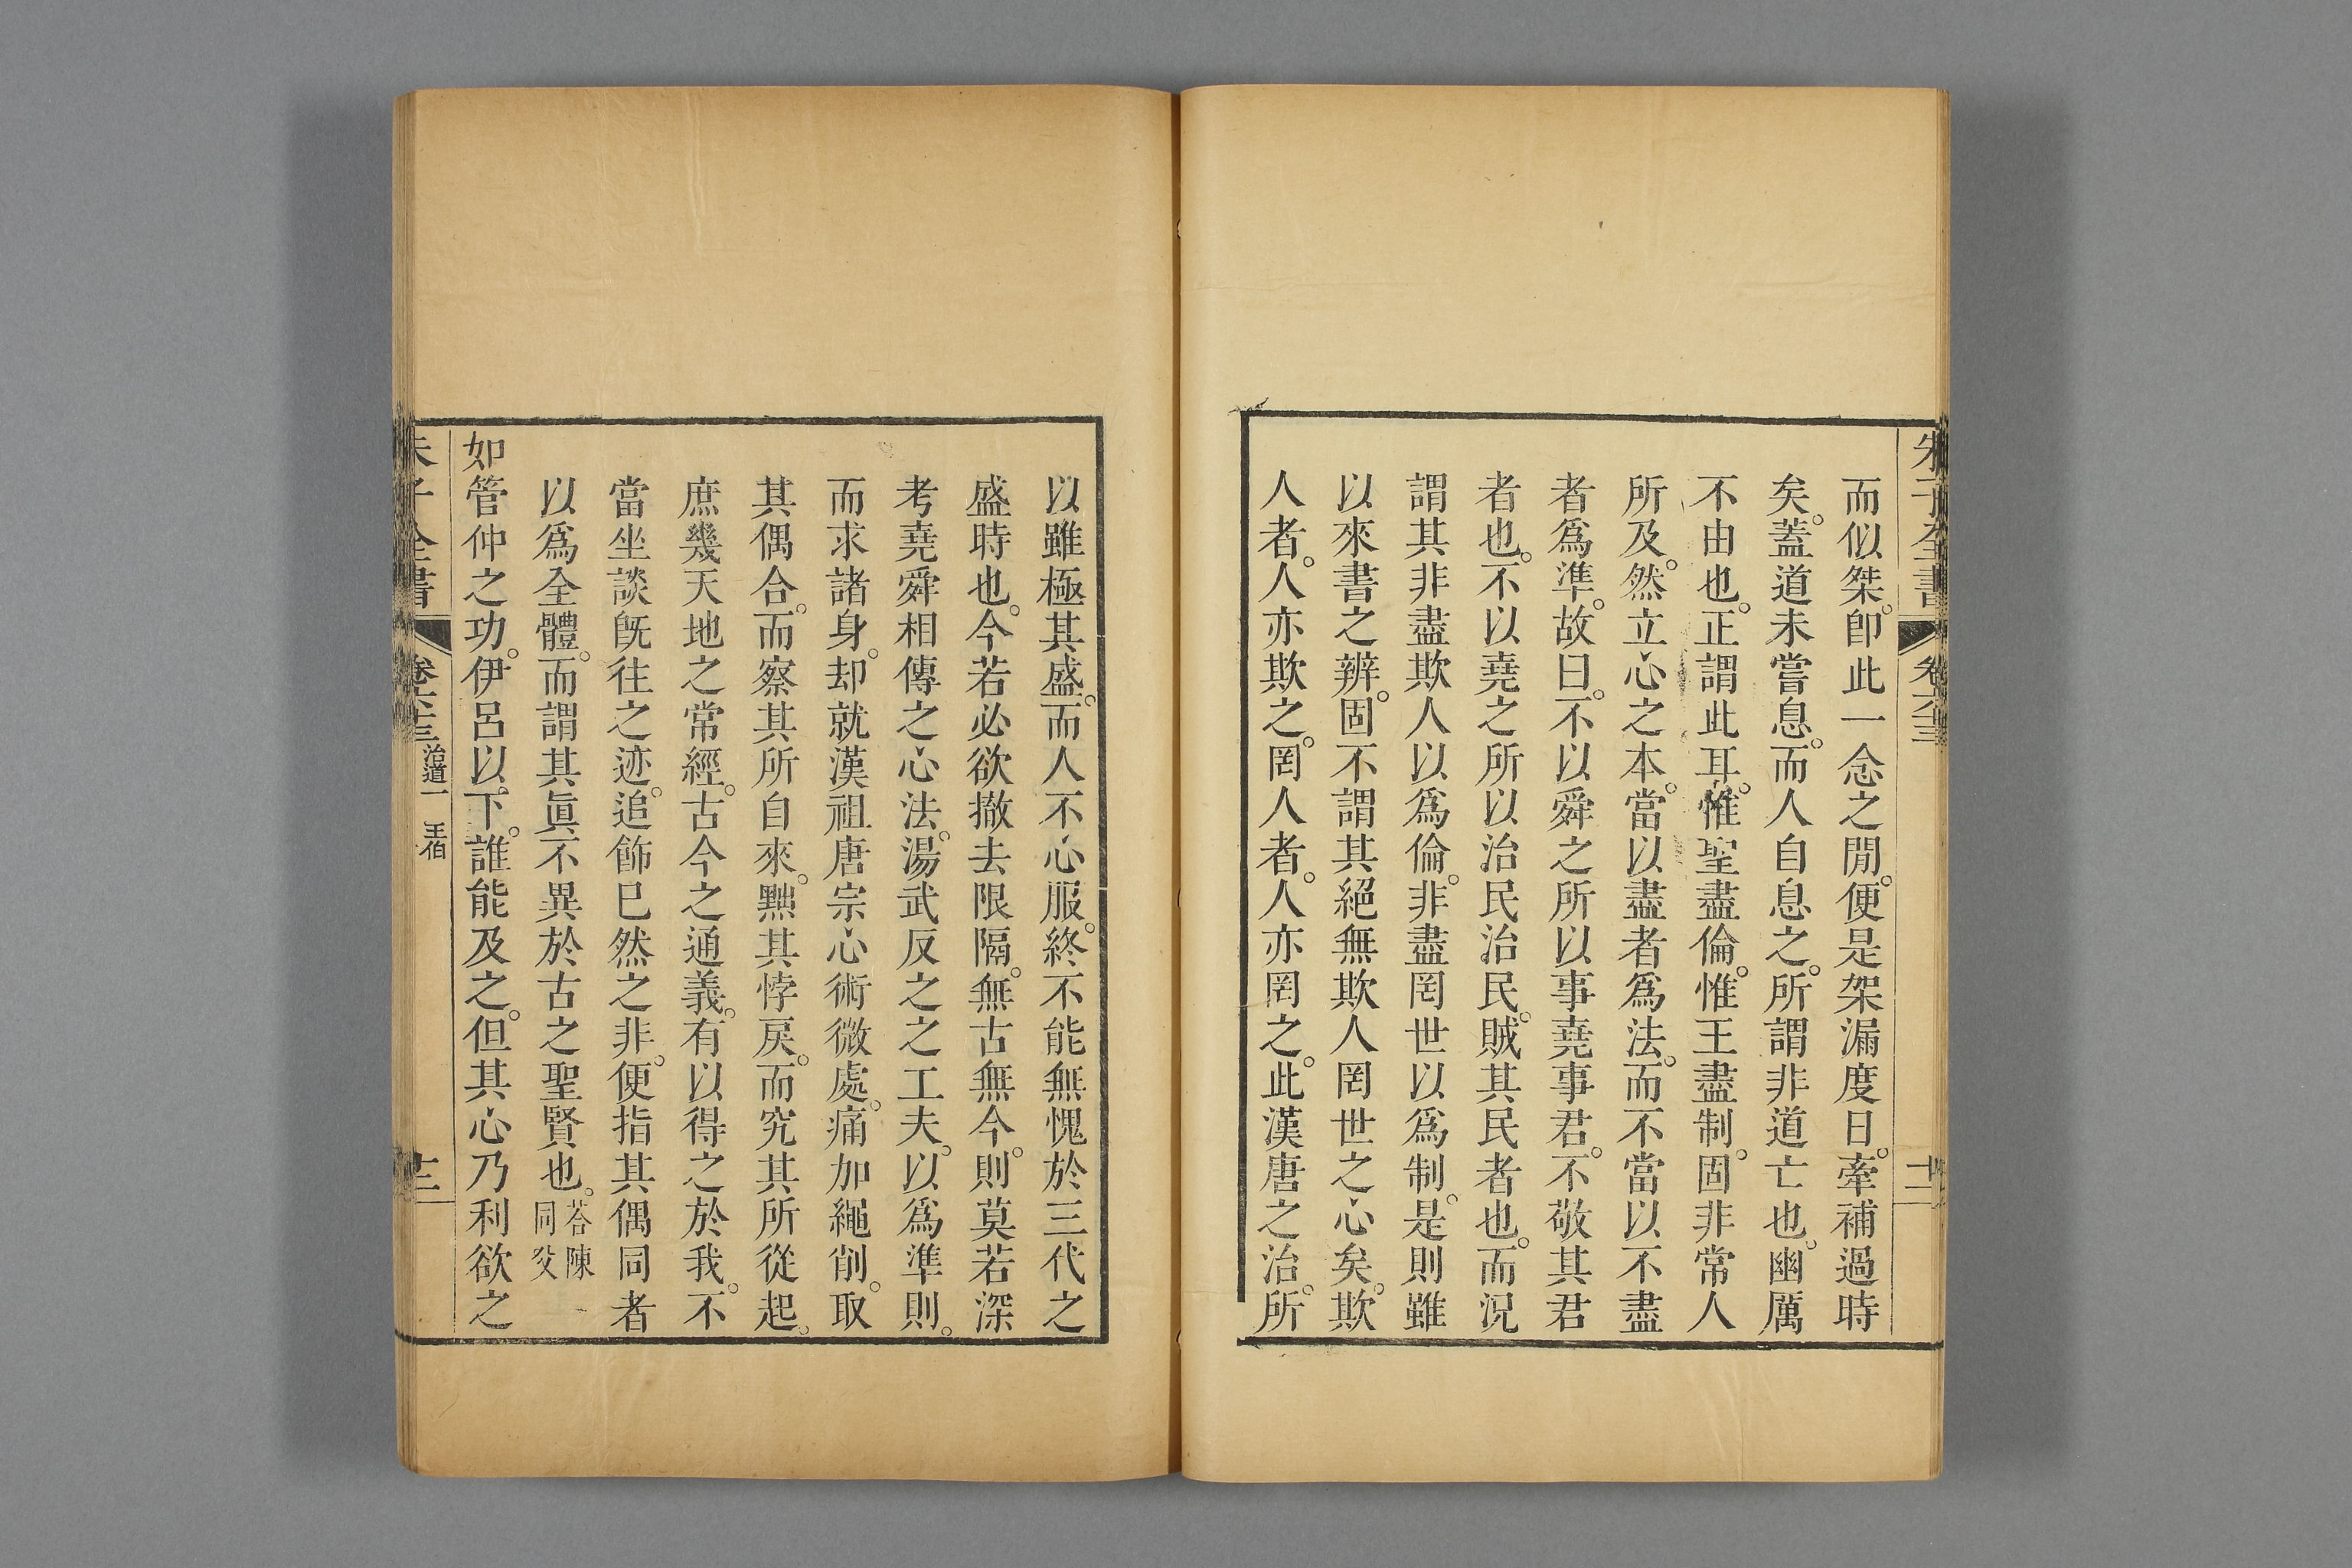 朱子全書
卷六十三
十二
而似桀。卽此一念之閒。便是架漏度日。牽補過時
矣。蓋道未嘗息。而人自息之。所謂非道亡也。幽厲
不由也。正謂此耳。惟聖盡倫。惟王盡制。固非常人
所及。然立心之本。當以盡者爲法。而不當以不盡
者爲準。故曰。不以舜之所以事堯事君。不敬其君
者也。不以堯之所以治民治民。賊其民者也。而況
謂其非盡欺人以爲倫。非盡罔世以爲制。是則雖
以來書之辨。固不謂其絕無欺人罔世之心矣。欺
人者。人亦欺之。罔人者。人亦罔之。此漢唐之治。所
以雖極其盛。而人不心服。終不能無愧於三代之
盛時也。今若必欲撤去限隔。無古無今。則莫若深
考堯舜相傳之心法。湯武反之之工夫。以爲準則。
而求諸身。却就漢祖唐宗心術微處。痛加繩削。取
其偶合。而察其所自來。黜其悖戾。而究其所從起。
庶幾天地之常經。古今之通義。有以得之於我。不
當坐談旣往之迹。追飾已然之非。便指其偶同者
以爲全體。而謂其眞不異於古之聖賢也。荅陳同父
如管仲之功。伊呂以下。誰能及之。但其心乃利欲之
朱子全書
卷六十三
治道一 王伯
十二